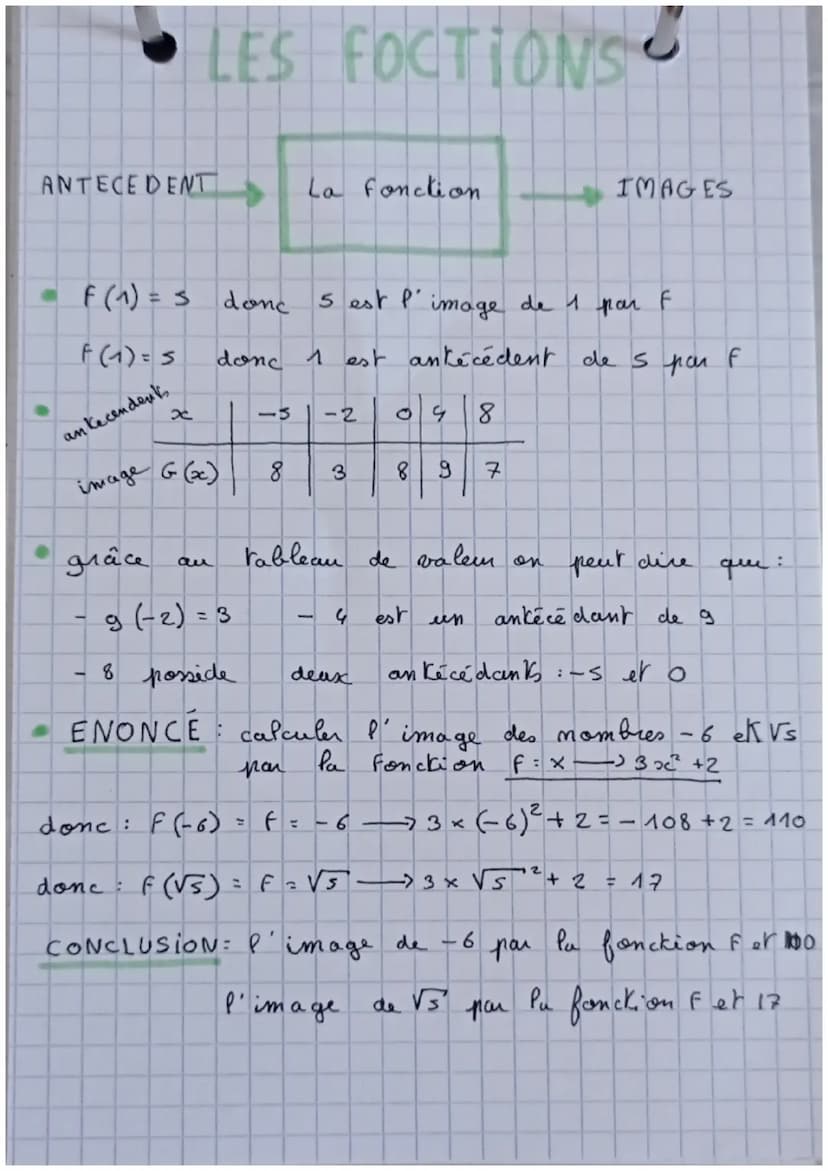 LES FOCTIONS
ANTECEDENT → La fonction → IMAGES
• f(1) = 5 donc 5 est l'image de 1 par f
f(1) = 5 donc 1 est antécédent de 5 par f
• antecendents x | -5 | -2 | 0 | 4 | 8
image G(x) | 8 | 3 | 8 | 9 | 7
• grâce au tableau de valeur on peut dire que :
- g(-2) = 3 - 4 est un antécédant de 9
- 8 posside deux antécédants : -5 et 0
• ENONCÉ : calculer l'image des nombres -6 et √5
par la fonction f = x → 3x² + 2
donc : f(-6) = f = -6 → 3 × (-6)² + 2 = - 108 + 2 = 110
donc : f(√5) = f = √5 → 3 × √5² + 2 = 17
CONCLUSION = l'image de -6 par la fonction f et
l'image de √5 par la fonction f et 17